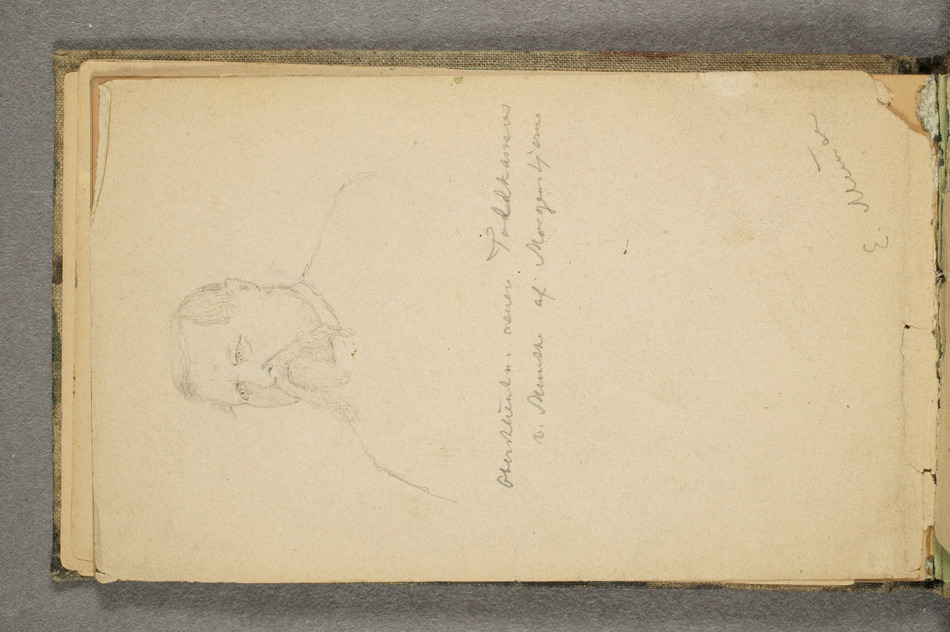 Oberstlieutn. senere Toldkasserer
v. Munthe af Morgenstjerne
E. Munch